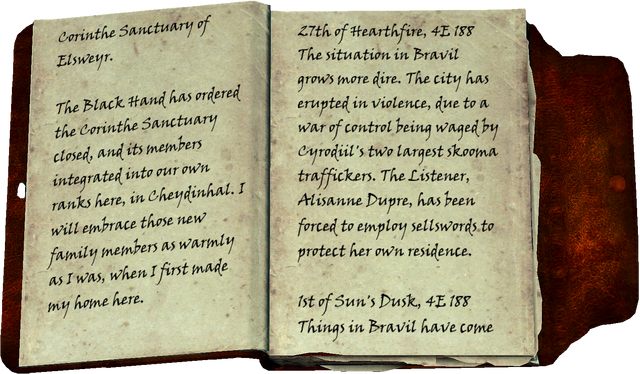 Corinthe Sanctuary of
Elsweyr.
The Black Hand has ordered
the Corinthe Sanctuary
closed, and its members
integrated into our own
ranks here, in Cheydinhal. I
will embrace those new
family members as warmly
as I was, when I first made
my home here.
27th of Hearthfire, 4E 188
The situation in Bravil
grows more dire. The city has
erupted in violence, due to a
war of control being waged by
Cyrodiil's two largest skooma
traffickers. The Listener,
Alisanne Dupre, has been
forced to employ sellswords to
protect her own residence.
1st of Sun's Dusk, 4E 188
Things in Bravil have come